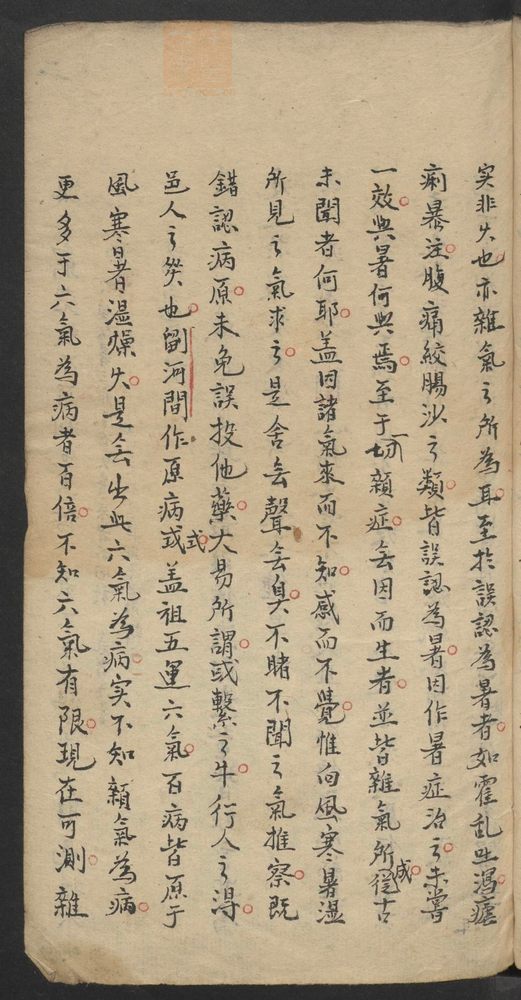 实非火也亦雜氣之所為耳至於誤認為暑者如霍乱吐瀉瘧
痢暴注腹痛絞腸沙之類皆誤認為暑因作暑症治之未嘗
一效與暑何與焉至于一切類症無因而生者並皆雜氣所成從古
未聞者何耶盖因諸氣來而不知感而不覺惟向風寒暑湿
所見之氣求之是舍無聲無臭不睹不聞之氣推察既
錯認病原未免誤投他藥大易所謂或繫之牛行人之得
邑人之灾也劉河間作原病式盖祖五運六氣百病皆原于
風寒暑湿燥火是無出此六氣為病实不知雜氣為病
更多于六氣為病者百倍不知六氣有限現在可測雜